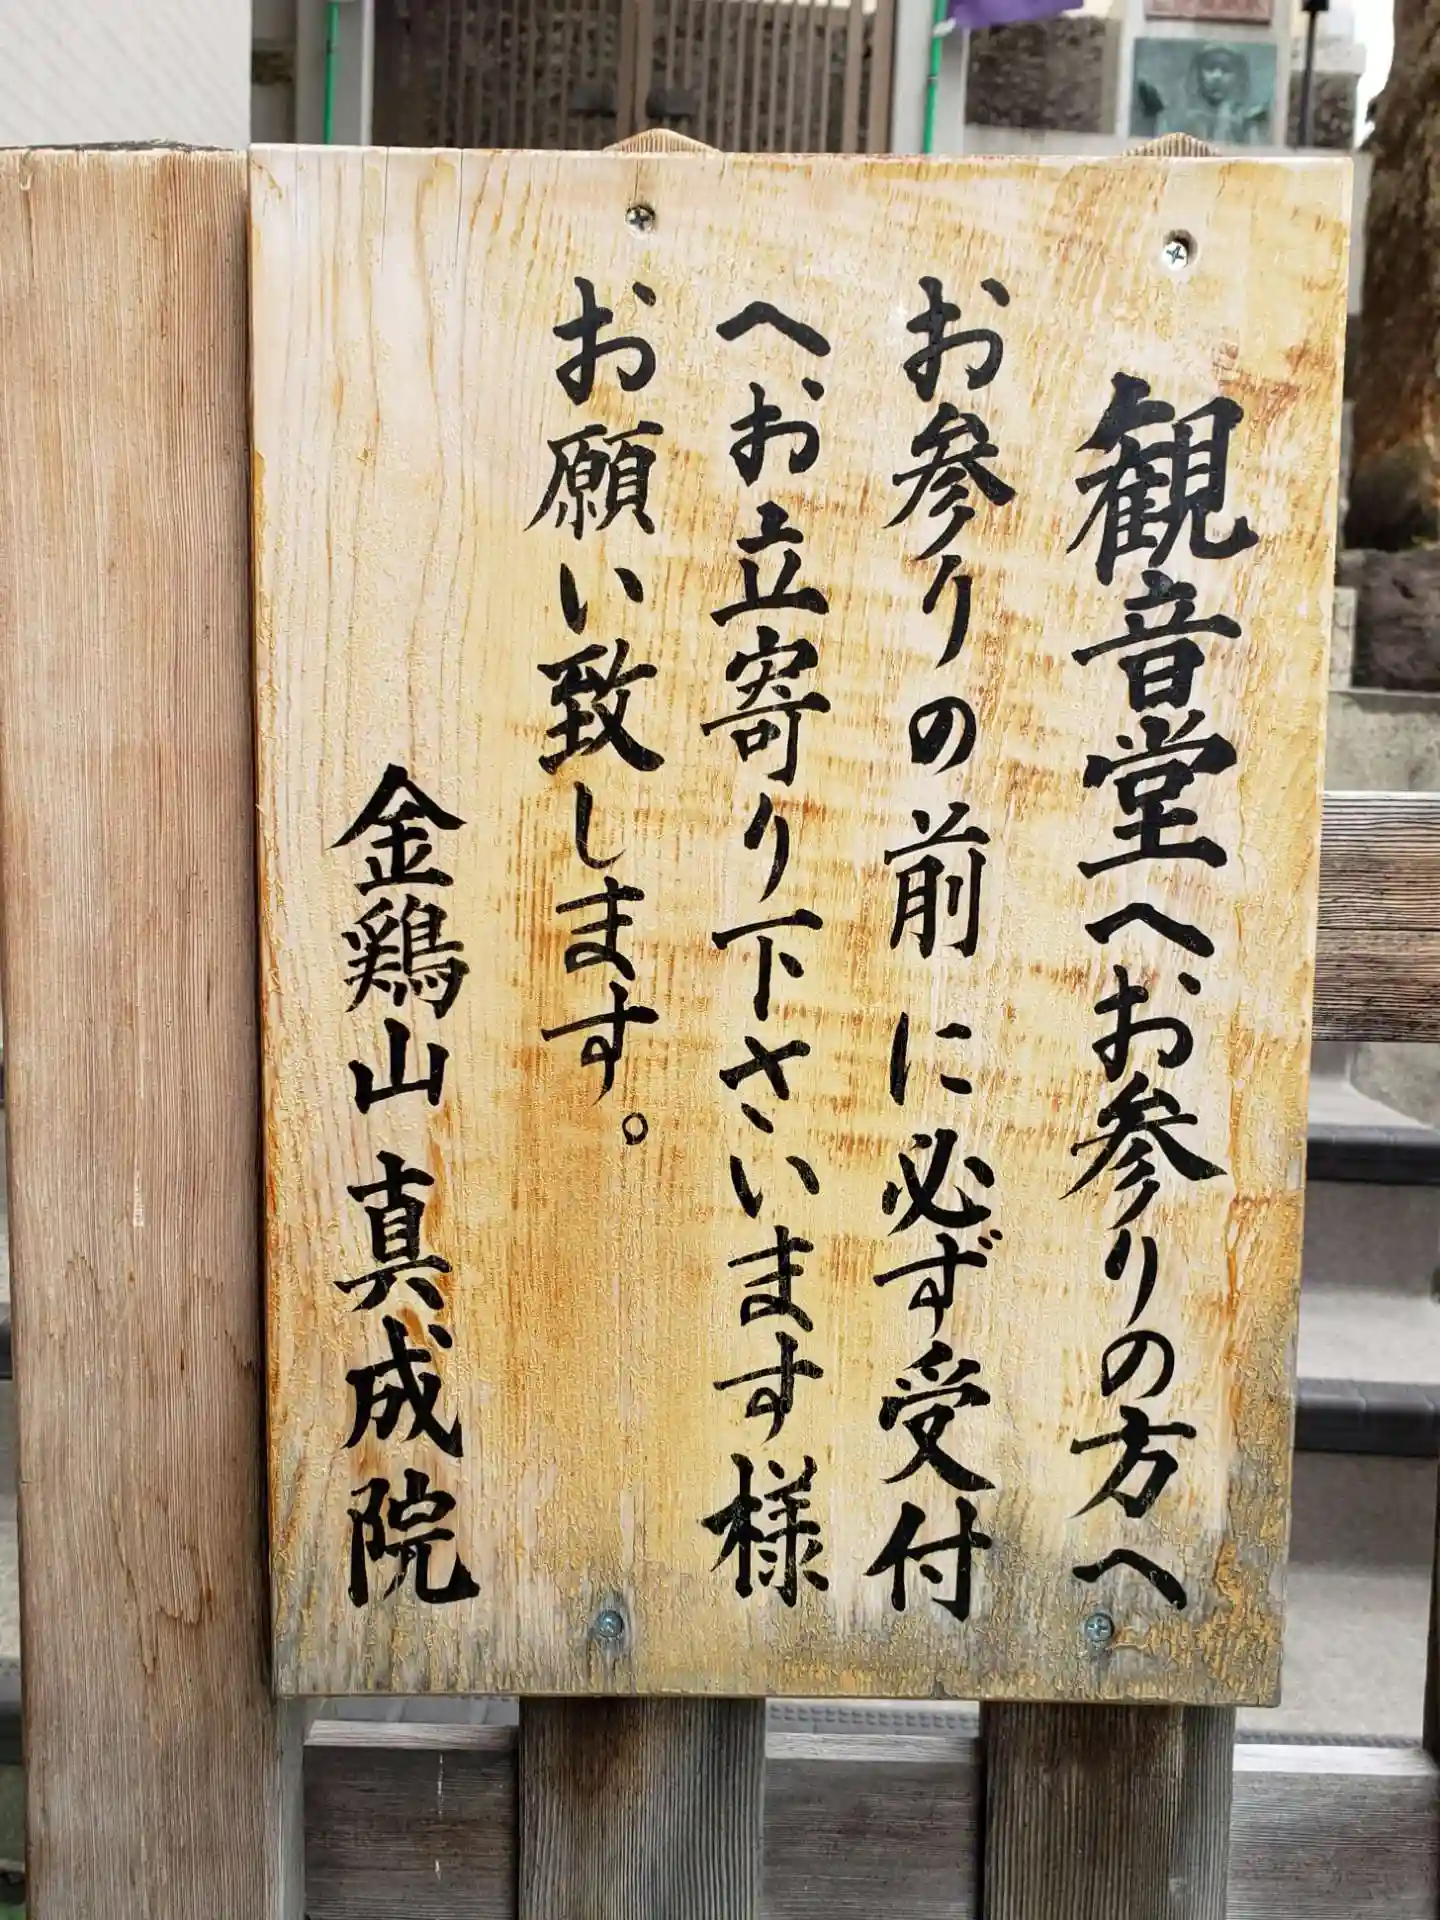 観音堂へお参りの方へ
お参りの前に必ず受付
へお立寄り下さいます様
お願い致します。
金鶏山 真成院